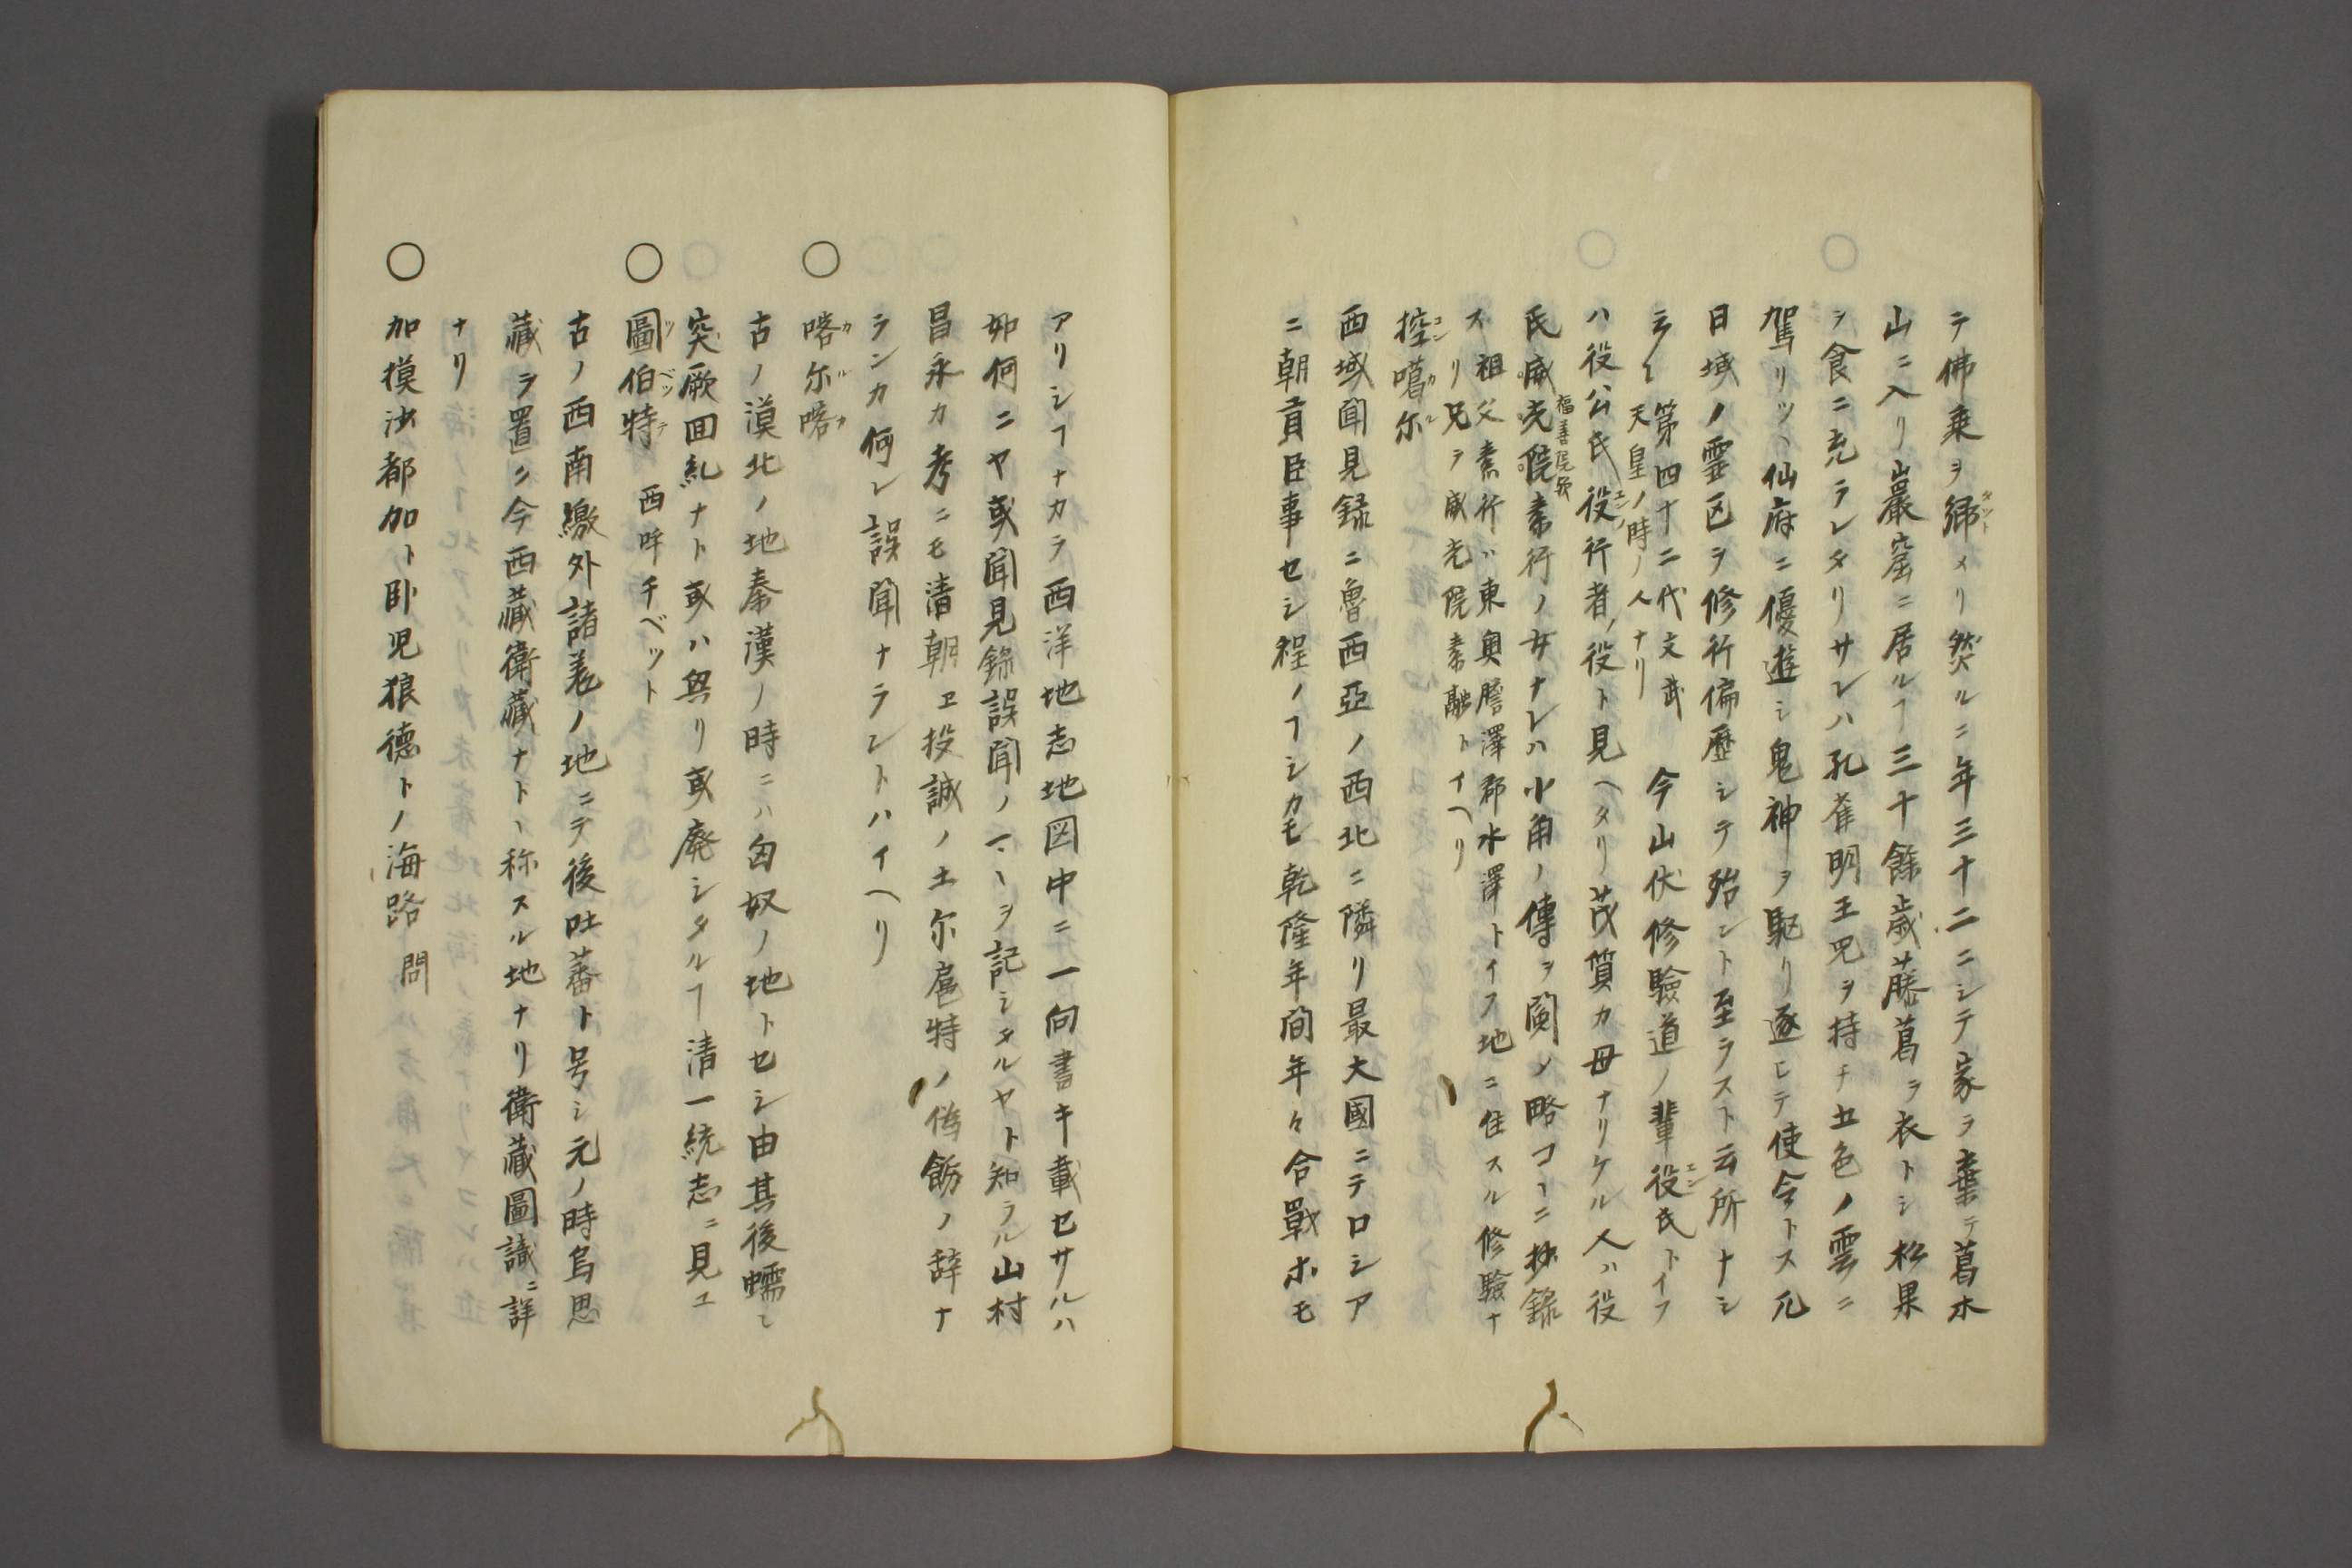 テ佛乗ヲ歸メリ然ルニ年三十二ニシテ家ヲ棄テ葛木
山ニ入リ巖窟ニ居ルヿ三十餘歳藤葛ヲ衣トシ松果
ヲ食ニ充ラレタリサレハ孔雀明王咒ヲ持チ五色ノ雲ニ
駕リツヽ仙府ニ優遊シ鬼神ヲ駆リ逐ヒテ使令トス凡
日域ノ霊区ヲ修行偏歷シテ殆ント至ラスト云所ナシ
云々 第四十二代文武
天皇ノ時ノ人ナリ 今山伏修驗道ノ輩役氏トイフ
ハ役公氏役行者ノ役ト見ヘタリ茂質カ母ナリケル人ハ役
氏威光院素行ノ女ナレハ小角ノ傳ヲ閲シ略コヽニ抄録
ス 祖父素行ハ東奥膽澤郡水澤トイフ地ニ住スル修驗ナ
リ兄ヲ威光院素融トイヘリ
控噶尔
西域聞見録ニ魯西亞ノ西北ニ隣リ最大國ニテロシア
ニ朝貢臣事セシ程ノヿシカモ乾隆年間年々合戰ホモ
アリシヿナカラ西洋地志地図中ニ一向書キ載セサルハ
如何ニヤ或聞見録誤聞ノマヽヲ記シタルヤト知ラル山村
昌永カ考ニモ清朝ヱ投誠ノ土尔扈特ノ偽飾ノ辞ナ
ランカ何レ誤聞ナラントハイヘリ
○ 喀尔喀
古ノ漠北ノ地秦漢ノ時ニハ匈奴ノ地トセシ由其後蠕々
突厥回紇ナト或ハ興リ或廃シタルヿ清一統志ニ見ユ
○ 圖伯特 西呼チベット
古ノ西南繳外諸羌ノ地ニテ後吐蕃ト号シ元ノ時烏思
藏ヲ置ク今西藏衛藏ナトヽ称スル地ナリ衛藏圖識ニ詳
ナリ
○ 加摸沙都加ト卧児狼德トノ海路 問